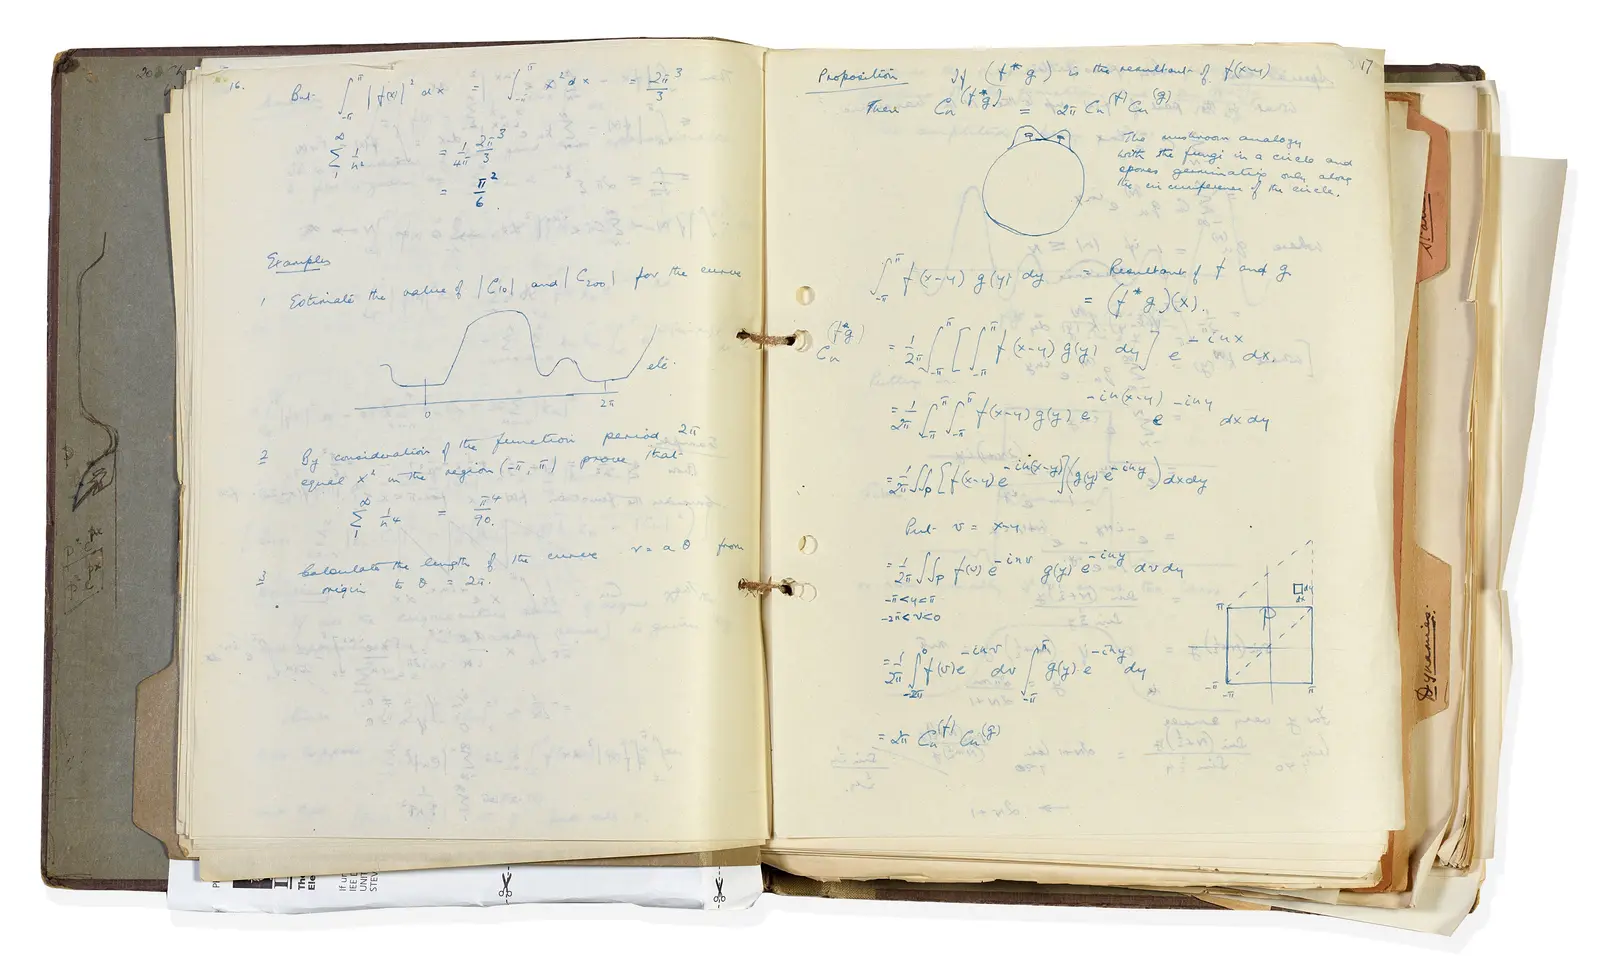 16.
But ∫_{-π}^{π} |f(x)|² dx = ∫_{-π}^{π} x² dx = 2π³/3
∑_1^∞ 1/n² = 1/4π 2π³/3
= π²/6
Examples
1 Estimate the value of |C10| and |C200| for the curve
etc.
0 2π
2 By consideration of the function period 2π
equal x² in the region (-π, π) prove that
∑_1^∞ 1/n⁴ = π⁴/90.
Calculate the length of the curve r = a θ from
origin to θ = 2π.
17
Proposition If (f*g) is the resultant of f(x-y)
Then Cn^(f*g) = 2π Cn^(f) Cn^(g)
The mushroom analogy
with the fungi in a circle and
spores germinating only along
the circumference of the circle.
∫_{-π}^{π} f(x-y) g(y) dy = Resultant of f and g
= (f*g)(x).
Cn^(f*g) = 1/2π ∫_{-π}^{π} [∫_{-π}^{π} f(x-y) g(y) dy] e^{-inx} dx.
= 1/2π ∫_{-π}^{π} ∫_{-π}^{π} f(x-y) g(y) e^{-in(x-y)} e^{-iny} dx dy
= 1/2π ∫∫_P [f(x-y) e^{-in(x-y)}] (g(y) e^{-iny}) dx dy
Put v = x-y
= 1/2π ∫∫_P f(v) e^{-inv} g(y) e^{-iny} dv dy
-π<y<π
-2π<v<0
dy
dx
π P
-π -π π
= 1/2π ∫_{-2π}^{0} f(v) e^{-inv} dv ∫_{-π}^{π} g(y) e^{-iny} dy
= 2π Cn^(f) Cn^(g)
Dynamics.